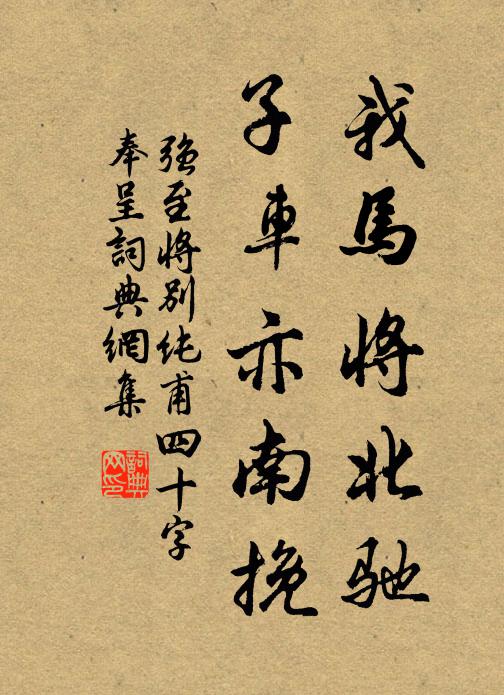 我馬將北馳
子車亦南挽
強至將別純甫四十字
奉呈詞典網集
詞典网印